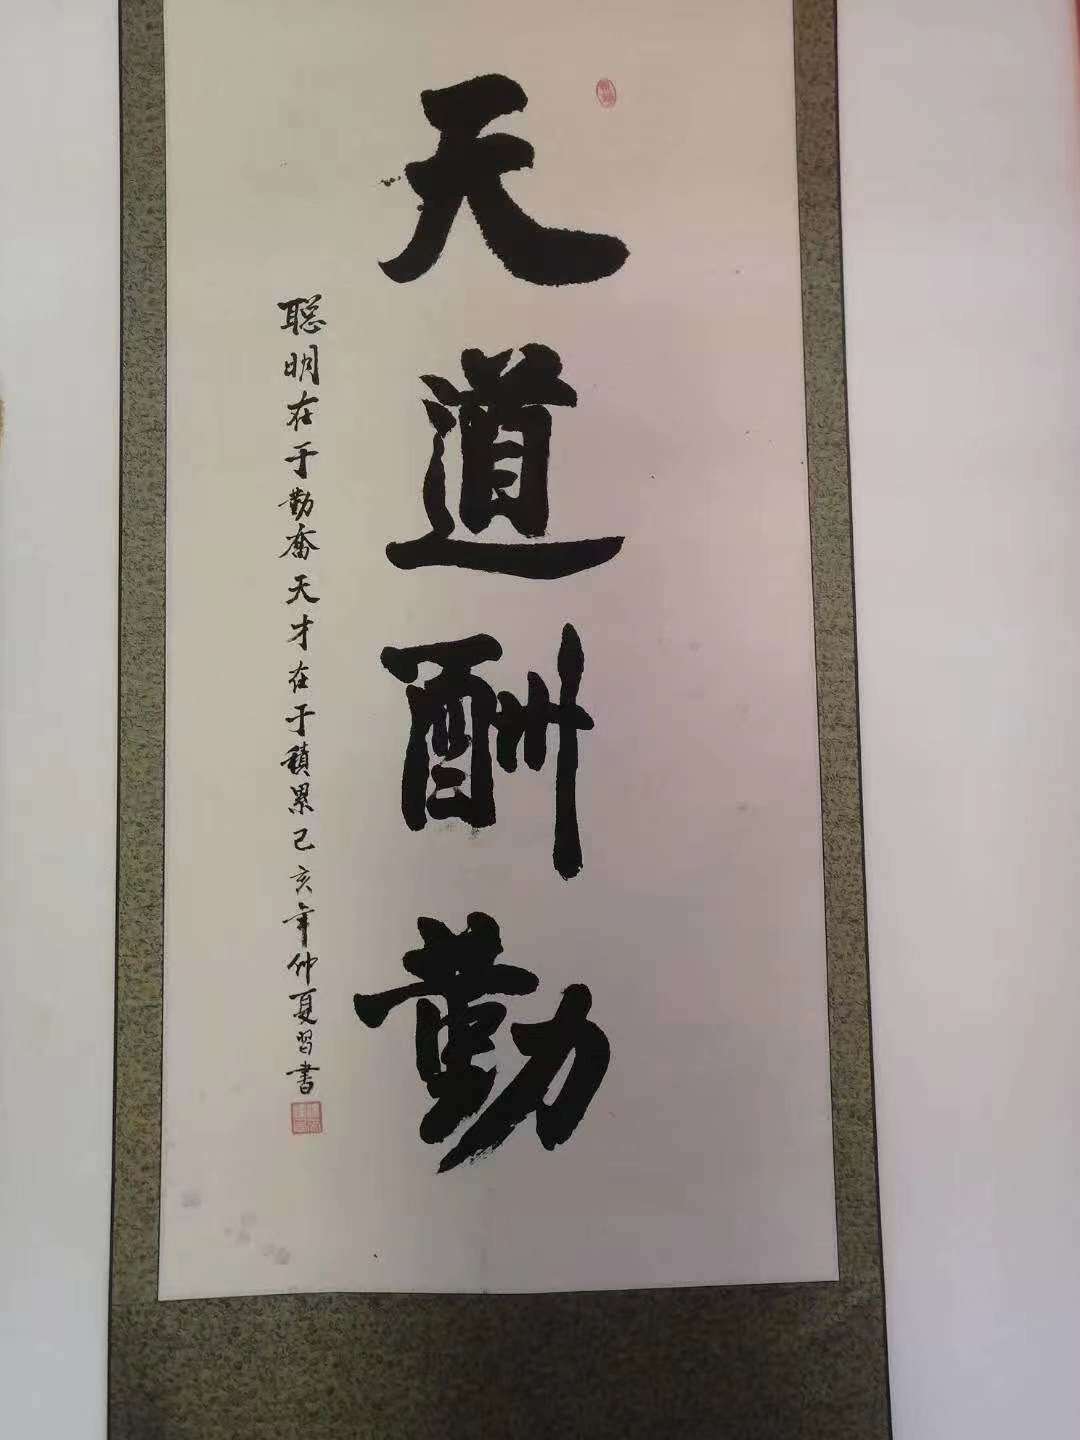 天道酬勤
聪明在于勤奋天才在于積累己亥年仲夏習書